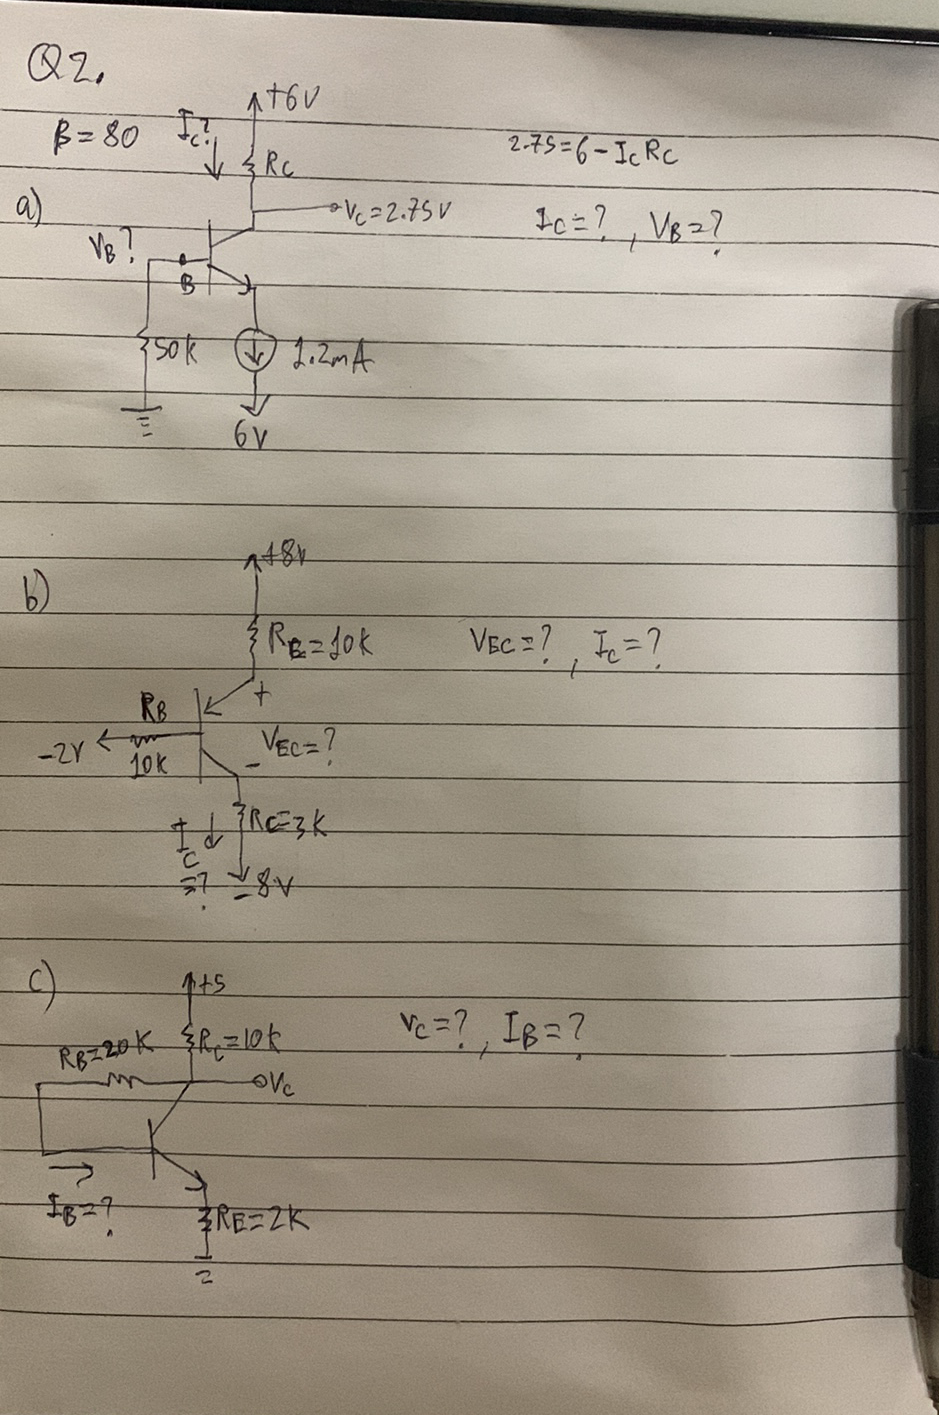 Q2.
β = 80
Ic?
+6V
Rc
2.75=6-IcRc
a)
Vc=2.75V
Ic=?, VB=?
VB?
B
50k
1.2mA
6V
b)
+8v
RE=10k
VEC=?, Ic=?
+
RB
-2V
10k
VEC=?
-
Ic=?
Rc=3k
-8V
c)
+5
RB=20K
Rc=10k
Vc=?, IB=?
Vc
IB=?
RE=2K